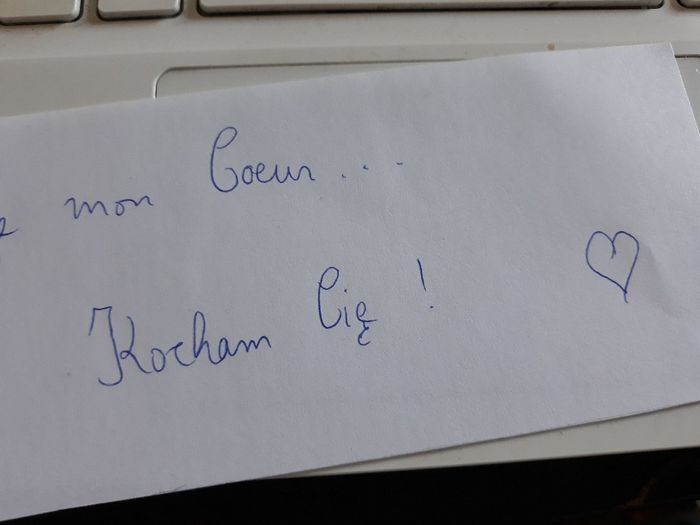 mon Coeur...
Kocham Cię !